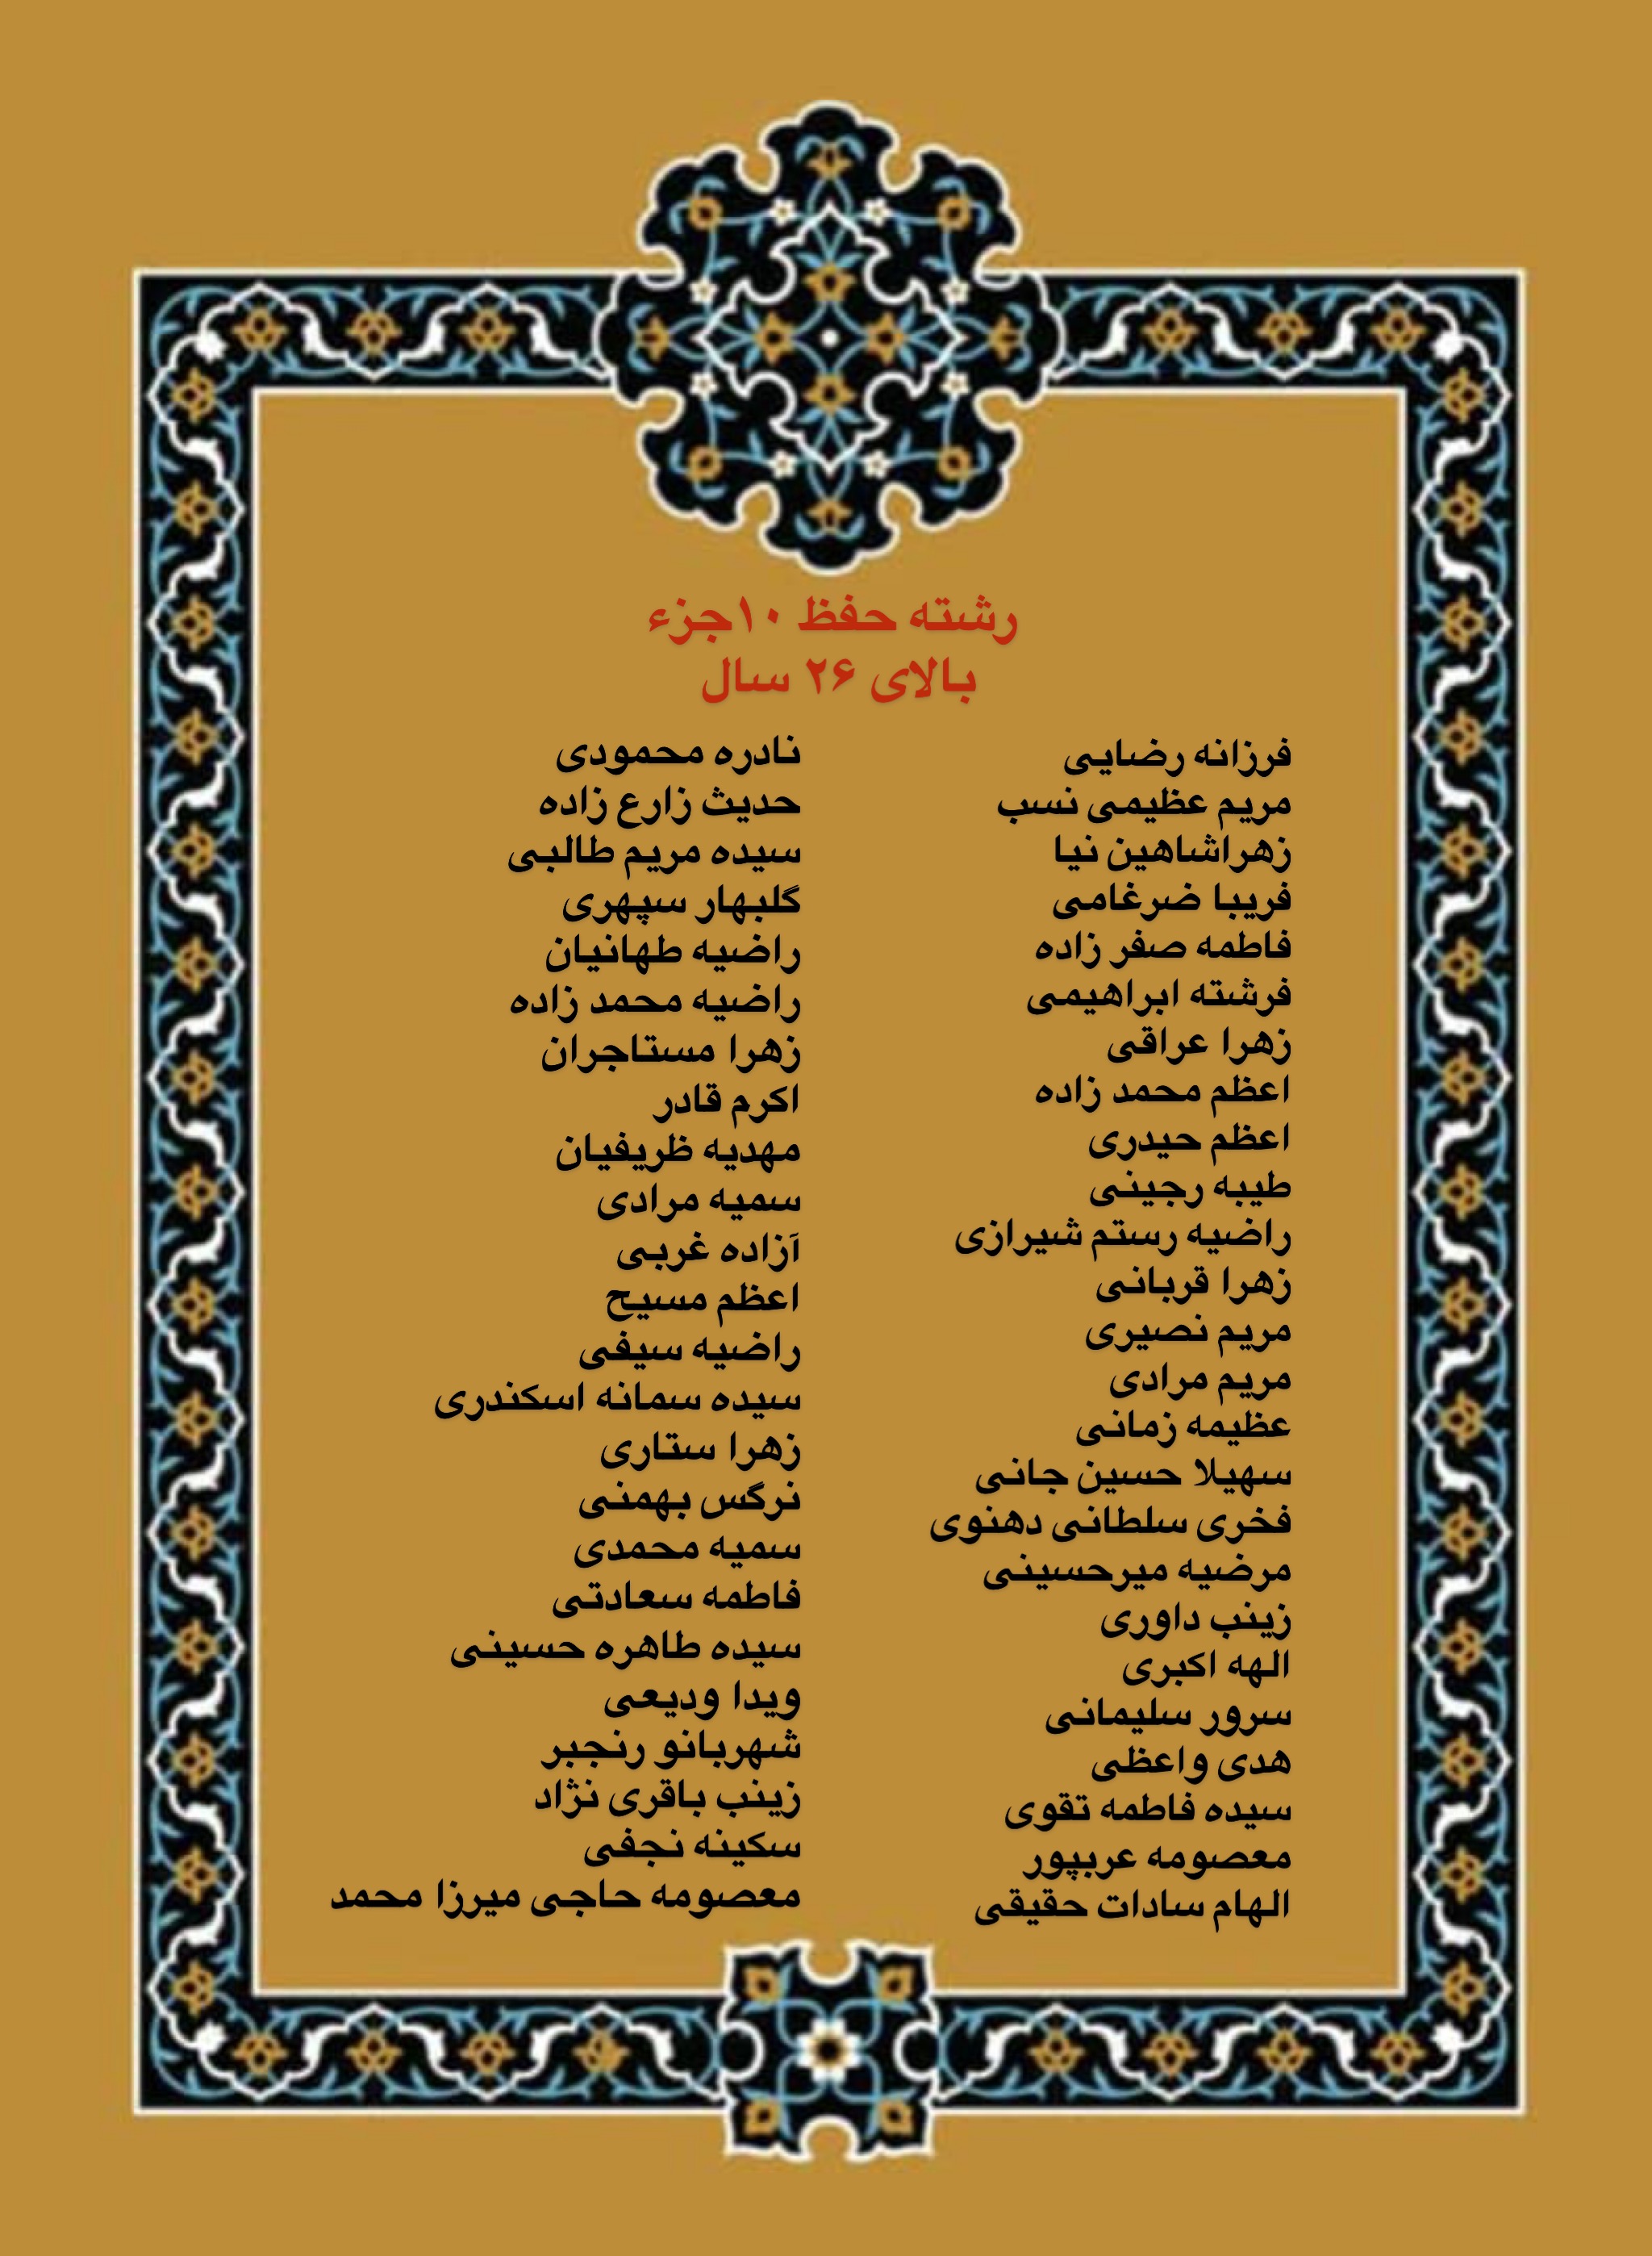 رشته حفظ ۱۰جزء
بالای ۲۶ سال
فرزانه رضایی
مریم عظیمی نسب
زهراشاهین نیا
فریبا ضرغامی
فاطمه صفر زاده
فرشته ابراهیمی
زهرا عراقی
اعظم محمد زاده
اعظم حیدری
طیبه رجینی
راضیه رستم شیرازی
زهرا قربانی
مریم نصیری
مریم مرادی
عظیمه زمانی
سهیلا حسین جانی
فخری سلطانی دهنوی
مرضیه میرحسینی
زینب داوری
الهه اکبری
سرور سلیمانی
هدی واعظی
سیده فاطمه تقوی
معصومه عربپور
الهام سادات حقیقی
نادره محمودی
حدیث زارع زاده
سیده مریم طالبی
گلبهار سپهری
راضیه طهانیان
راضیه محمد زاده
زهرا مستاجران
اکرم قادر
مهدیه ظریفیان
سمیه مرادی
آزاده غربی
اعظم مسیح
راضیه سیفی
سیده سمانه اسکندری
زهرا ستاری
نرگس بهمنی
سمیه محمدی
فاطمه سعادتی
سیده طاهره حسینی
ویدا ودیعی
شهربانو رنجبر
زینب باقری نژاد
سکینه نجفی
معصومه حاجی میرزا محمد